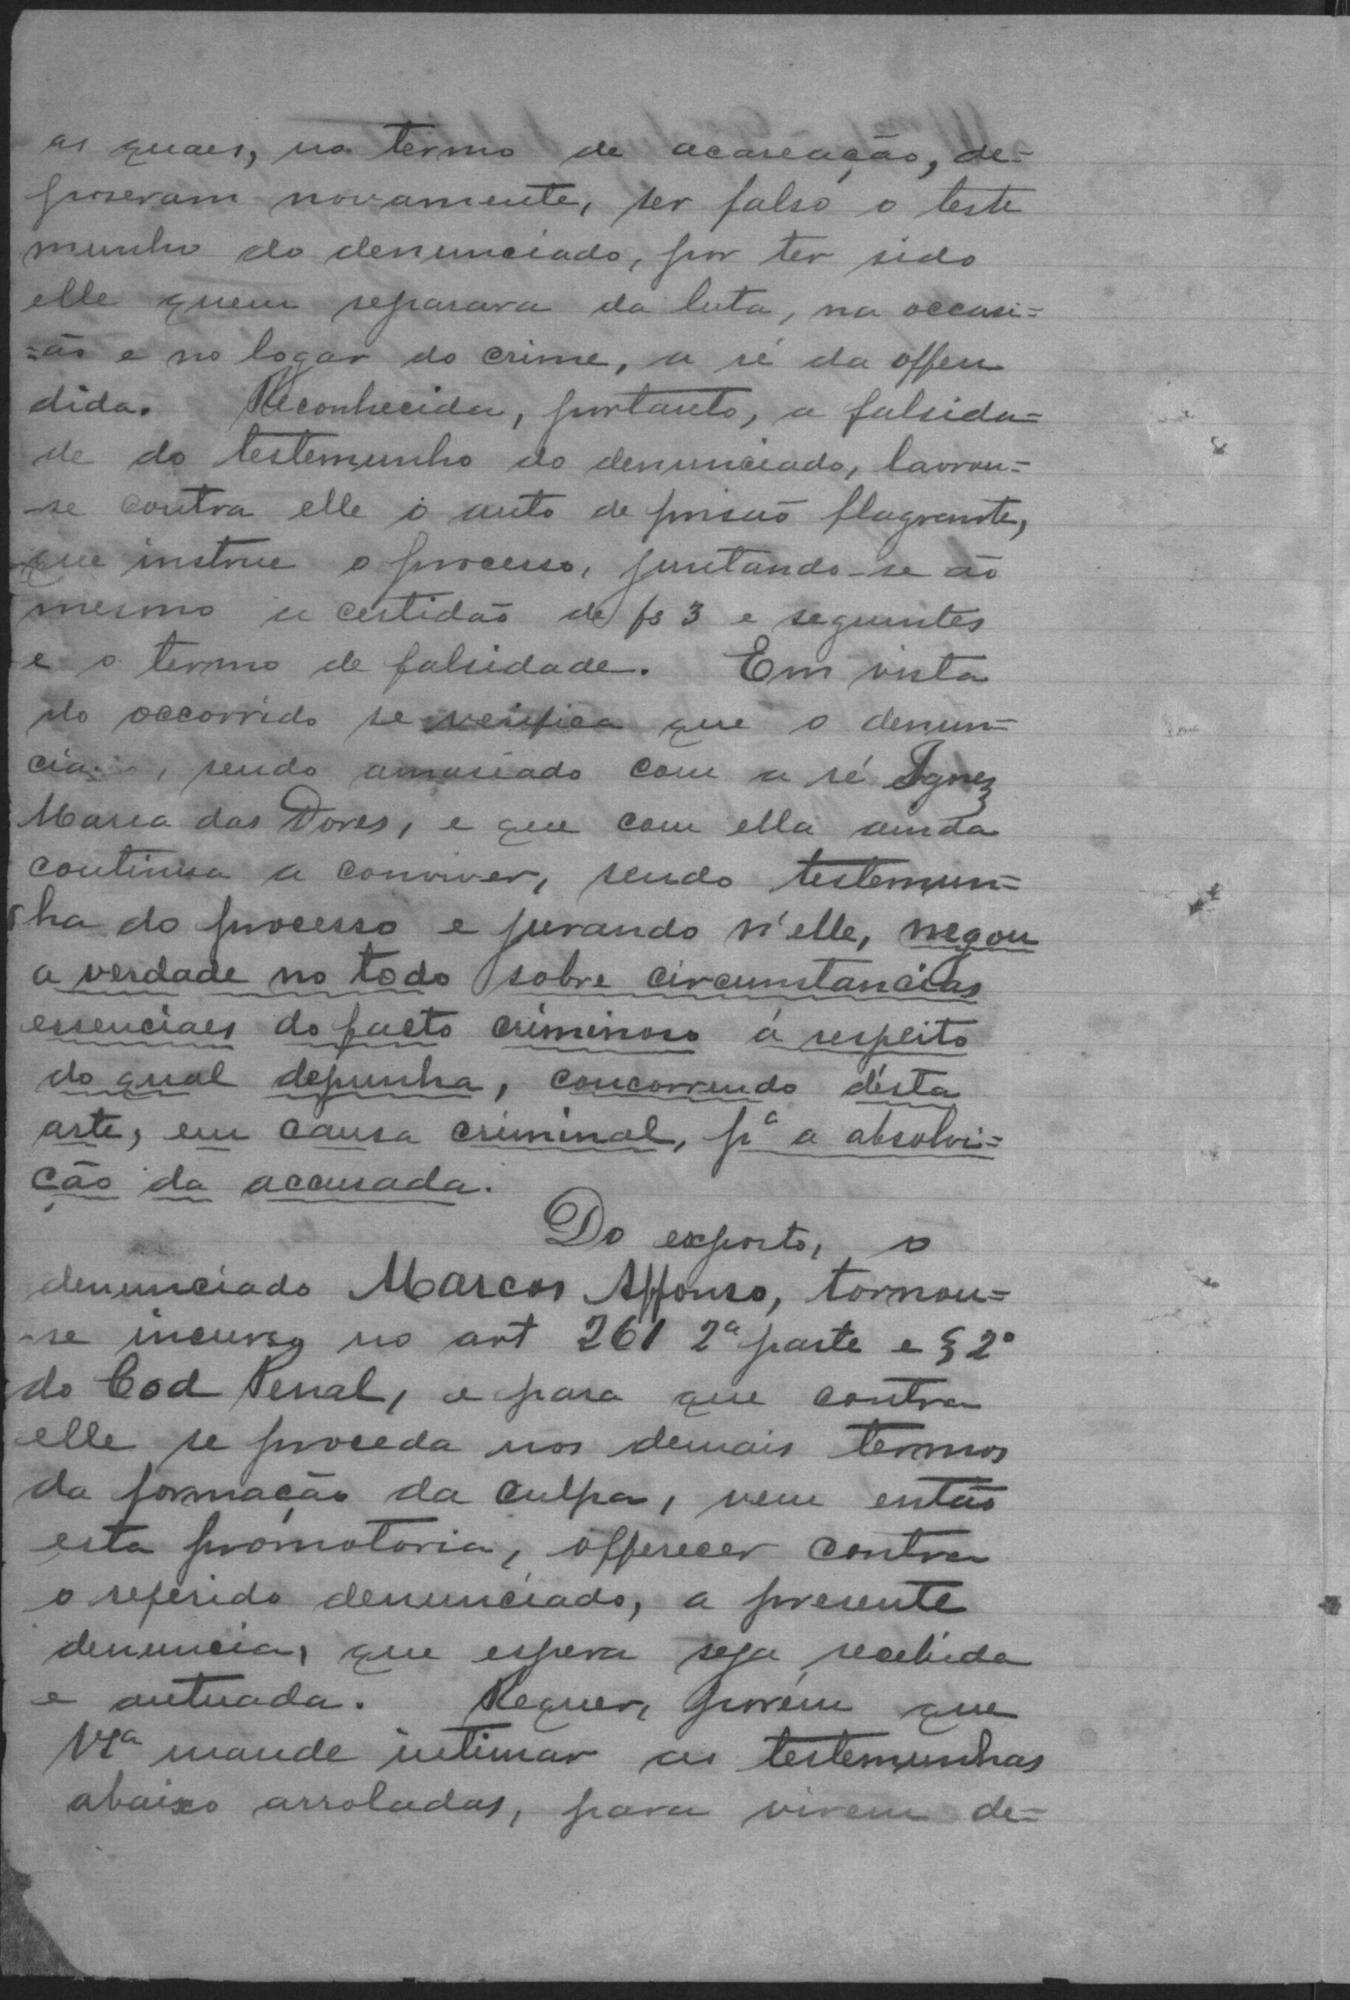 as quaes, no termo de acareação, de=
poseram novamente, ser falso o teste
munho do denunciado, por ter sido
elle quem separara da luta, na occasi=
=ão e no logar do crime, a ré da offen
dida. Reconhecida, portanto, a falsida=
de do testemunho do denunciado, lavrou=
-se contra elle o auto de prisão flagrante,
que instrue o processo, juntando-se ao
mesmo a certidão de fs 3 e seguintes
e o termo de falsidade. Em vista
do occorrido se verifica que o denun=
ciado, sendo amasiado com a ré Ignez
Maria das Dores, e que com ella ainda
continua a conviver, sendo testemun=
ha do processo e jurando n'elle, negou
a verdade no todo sobre circumstancias
essenciaes do facto criminoso á respeito
do qual depunha, concorrendo désta
arte, em causa criminal, pª a absolvi=
ção da accusada.
Do exposto, o
denunciado Marcos Affonso, tornou=
-se incurso no art 261 2ª parte e § 2º
do Cod Penal, e para que contra
elle se proceda nos demais termos
da formação da culpa, vem então
esta promotoria, offerecer contra
o referido denunciado, a presente
denuncia, que espera seja recebida
e autuada. Requer, porém que
Vª mande intimar as testemunhas
abaixo arroladas, para virem de=